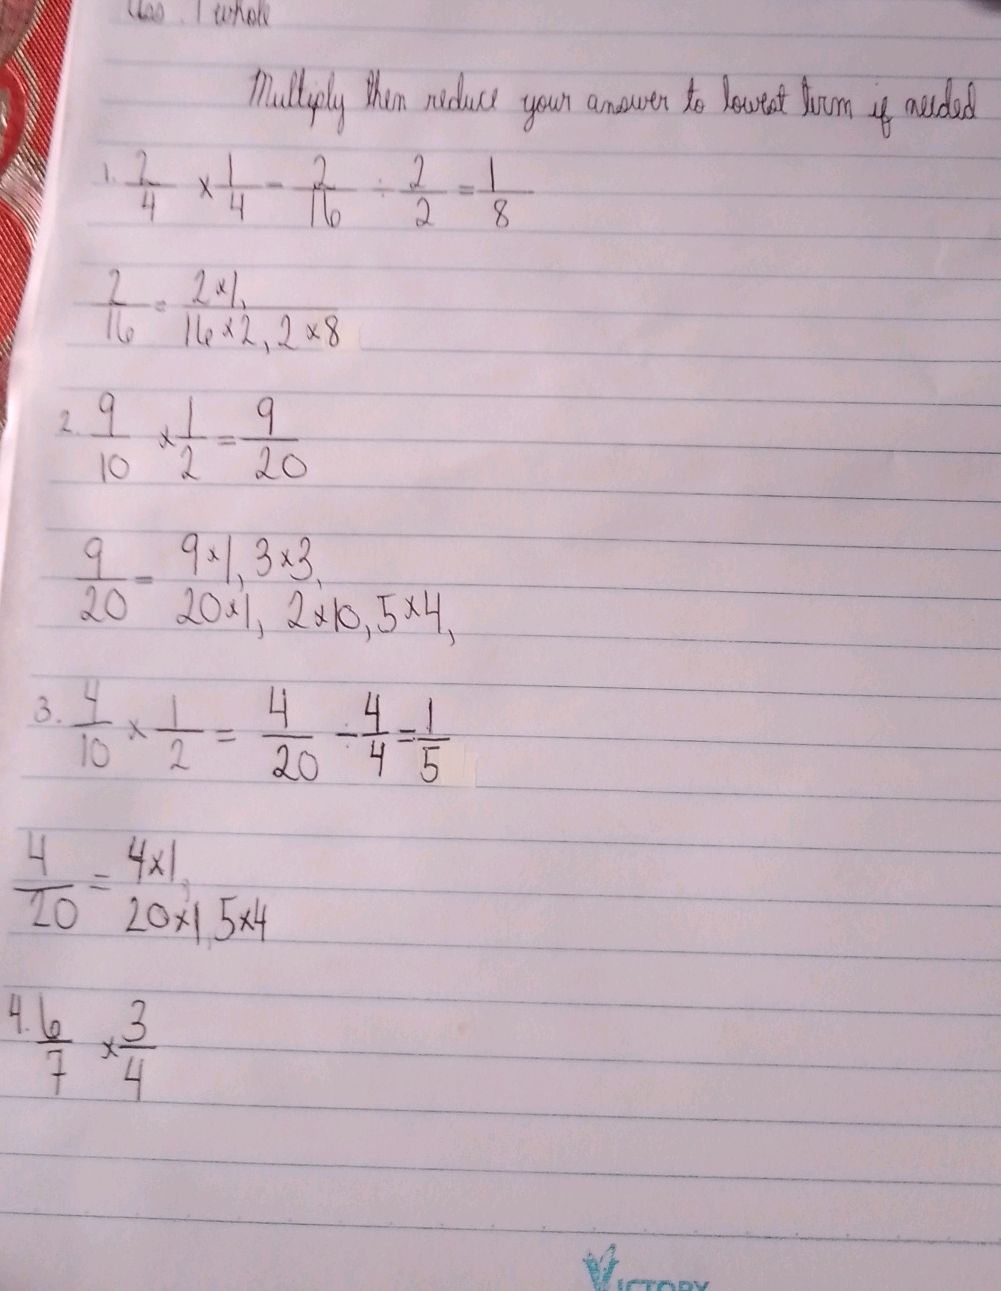 1 whole
Multiply then reduce your answer to lowest term if needed
1. 2/4 × 1/4 = 2/16 ÷ 2/2 = 1/8
2/16 = 2×1, / 16×2, 2×8
2. 9/10 × 1/2 = 9/20
9/20 = 9×1, 3×3, / 20×1, 2×10, 5×4,
3. 4/10 × 1/2 = 4/20 ÷ 4/4 = 1/5
4/20 = 4×1, / 20×1, 5×4
4. 6/7 × 3/4
VICTORY